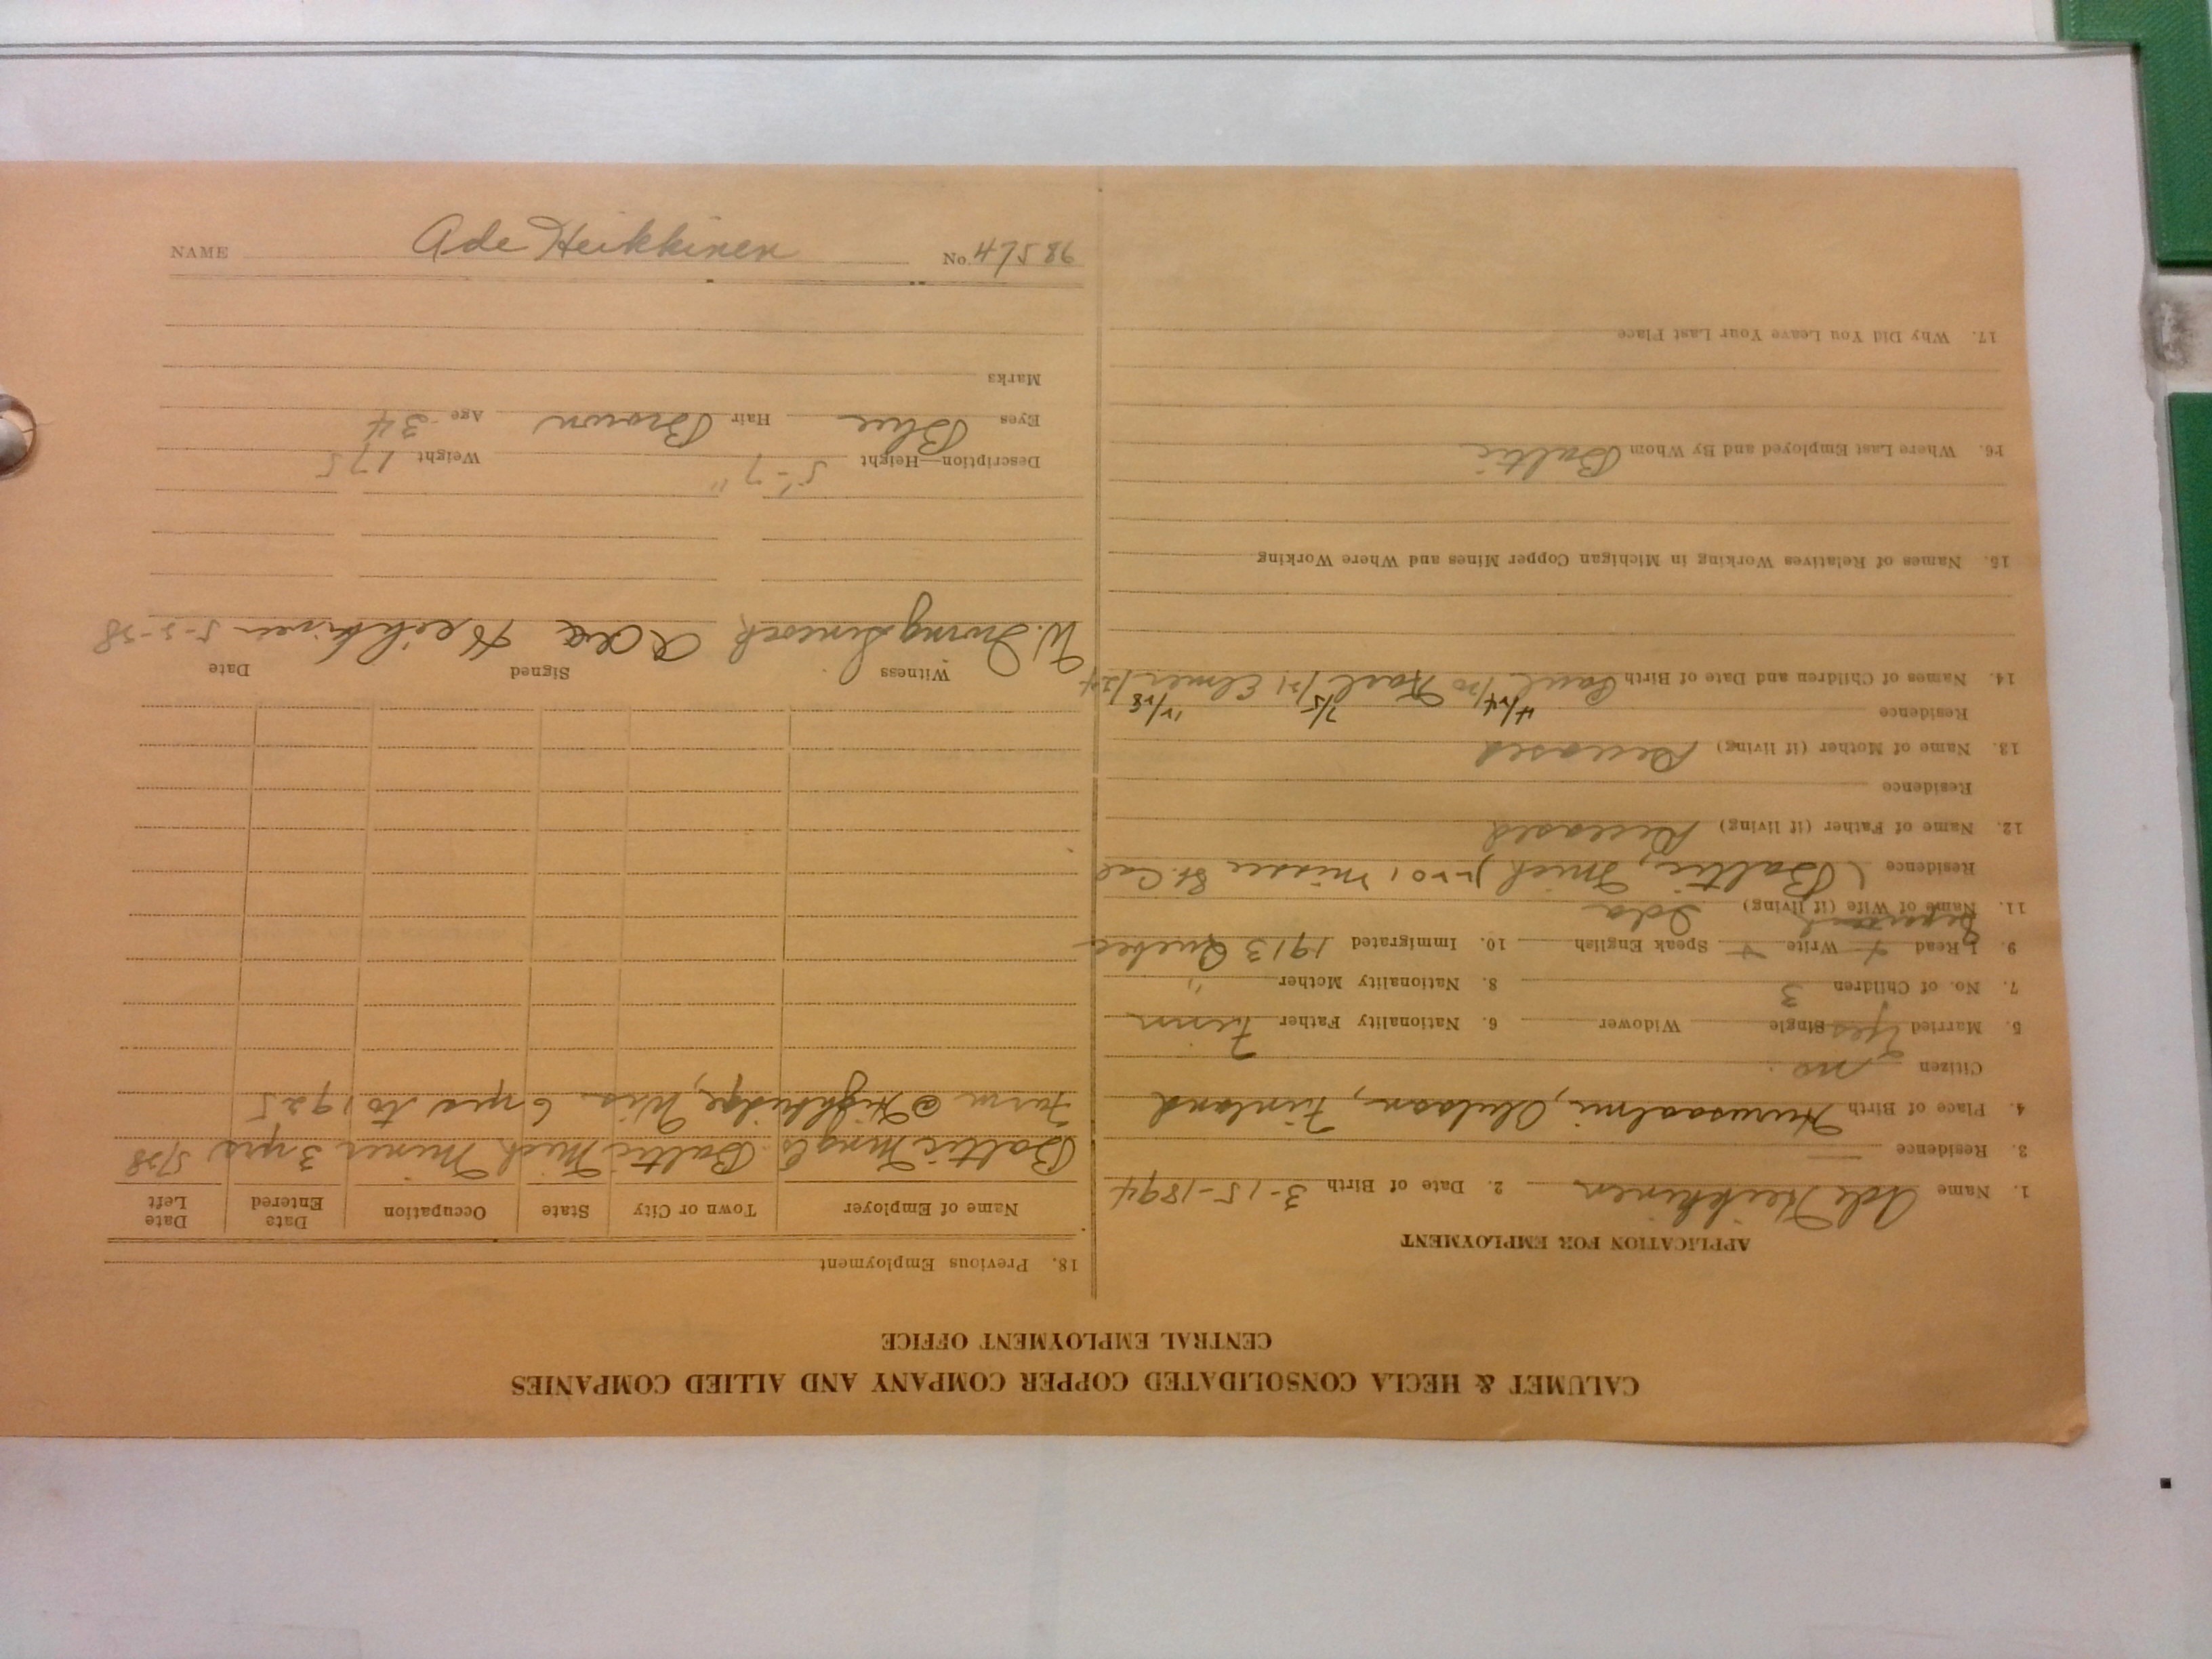 CALUMET & HECLA CONSOLIDATED COPPER COMPANY AND ALLIED COMPANIES
CENTRAL EMPLOYMENT OFFICE
APPLICATION FOR EMPLOYMENT
1. Name Ade Heikkinen 2. Date of Birth 3-15-1894
3. Residence
4. Place of Birth Finland
Citizen no
5. Married Yes Single Widower 6. Nationality Father Finn
7. No. of Children 3 8. Nationality Mother "
9. Read + Write + Speak English 10. Immigrated 1913 Quebec
11. Name of Wife (if living) Ida
Residence (Baltic, Mich)
12. Name of Father (if living) Deceased
Residence
13. Name of Mother (if living) Deceased
Residence
14. Names of Children and Date of Birth Elmer
15. Names of Relatives Working in Michigan Copper Mines and Where Working
16. Where Last Employed and By Whom Baltic
17. Why Did You Leave Your Last Place
18. Previous Employment
Name of Employer Town or City State Occupation Date Entered Date Left
Baltic Baltic Mich Miner 3 yrs 5/28
Farm @ Highbridge, Wis. 6 yrs to 1925
Witness Signed Date
W. Irving Heikkinen
Description—Height 5'-7" Weight 175
Eyes Blue Hair Brown Age 34
Marks
NAME Ade Heikkinen No. 47586